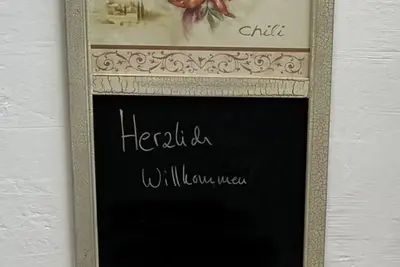 chili
Herzlich
Willkommen